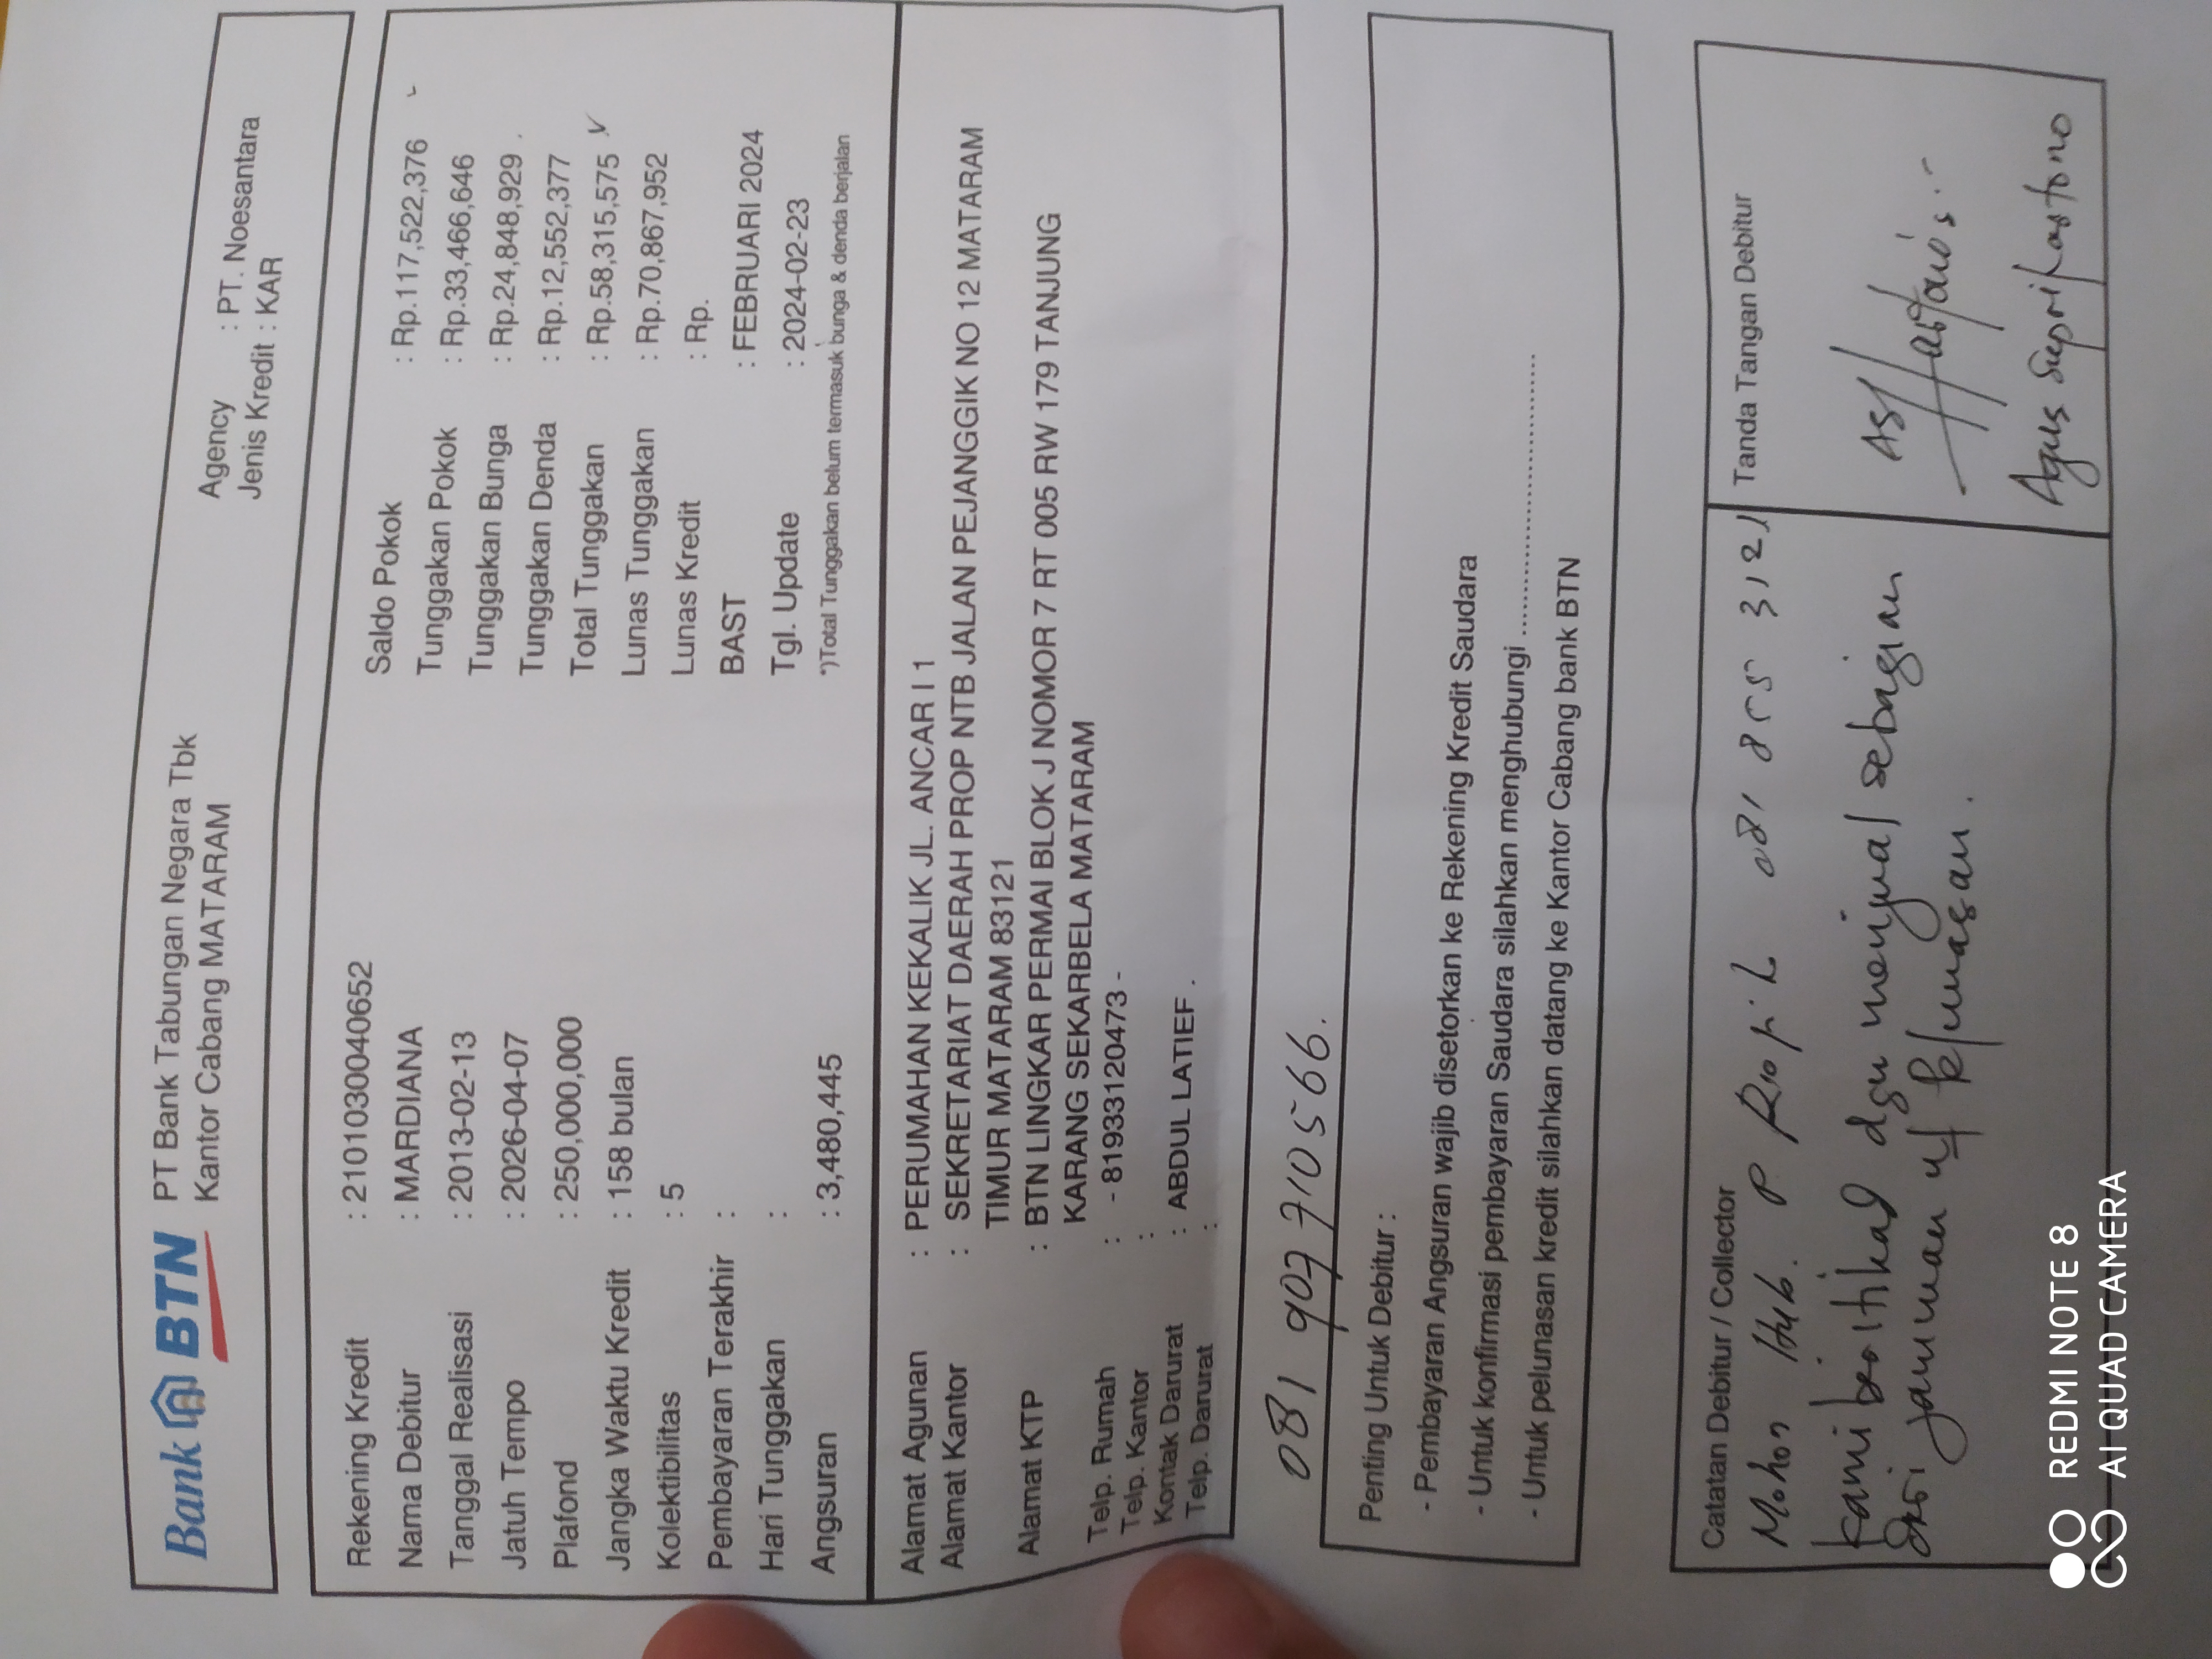 Bank BTN
PT Bank Tabungan Negara Tbk
Kantor Cabang MATARAM
Agency : PT. Noesantara
Jenis Kredit : KAR
Rekening Kredit : 2101030040652
Nama Debitur : MARDIANA
Tanggal Realisasi : 2013-02-13
Jatuh Tempo : 2026-04-07
Plafond : 250,000,000
Jangka Waktu Kredit : 158 bulan
Kolektibilitas : 5
Pembayaran Terakhir :
Hari Tunggakan :
Angsuran : 3,480,445
Saldo Pokok : Rp.117,522,376
Tunggakan Pokok : Rp.33,466,646
Tunggakan Bunga : Rp.24,848,929
Tunggakan Denda : Rp.12,552,377
Total Tunggakan : Rp.58,315,575
Lunas Tunggakan : Rp.70,867,952
Lunas Kredit : Rp.
BAST : FEBRUARI 2024
Tgl. Update : 2024-02-23
*)Total Tunggakan belum termasuk bunga & denda berjalan
Alamat Agunan : PERUMAHAN KEKALIK JL. ANCAR I 1
Alamat Kantor : SEKRETARIAT DAERAH PROP NTB JALAN PEJANGGIK NO 12 MATARAM
TIMUR MATARAM 83121
Alamat KTP : BTN LINGKAR PERMAI BLOK J NOMOR 7 RT 005 RW 179 TANJUNG
KARANG SEKARBELA MATARAM
Telp. Rumah : - 81933120473 -
Telp. Kantor :
Kontak Darurat : ABDUL LATIEF .
Telp. Darurat :
081 907 710 566.
Penting Untuk Debitur :
- Pembayaran Angsuran wajib disetorkan ke Rekening Kredit Saudara
- Untuk konfirmasi pembayaran Saudara silahkan menghubungi ........................
- Untuk pelunasan kredit silahkan datang ke Kantor Cabang bank BTN
Catatan Debitur / Collector
Mohon Hub. P
kami beritikad dgn menjual sebagian
dari jaminan u/ pelunasan.
Tanda Tangan Debitur
Agus Suprihastono
REDMI NOTE 8
AI QUAD CAMERA